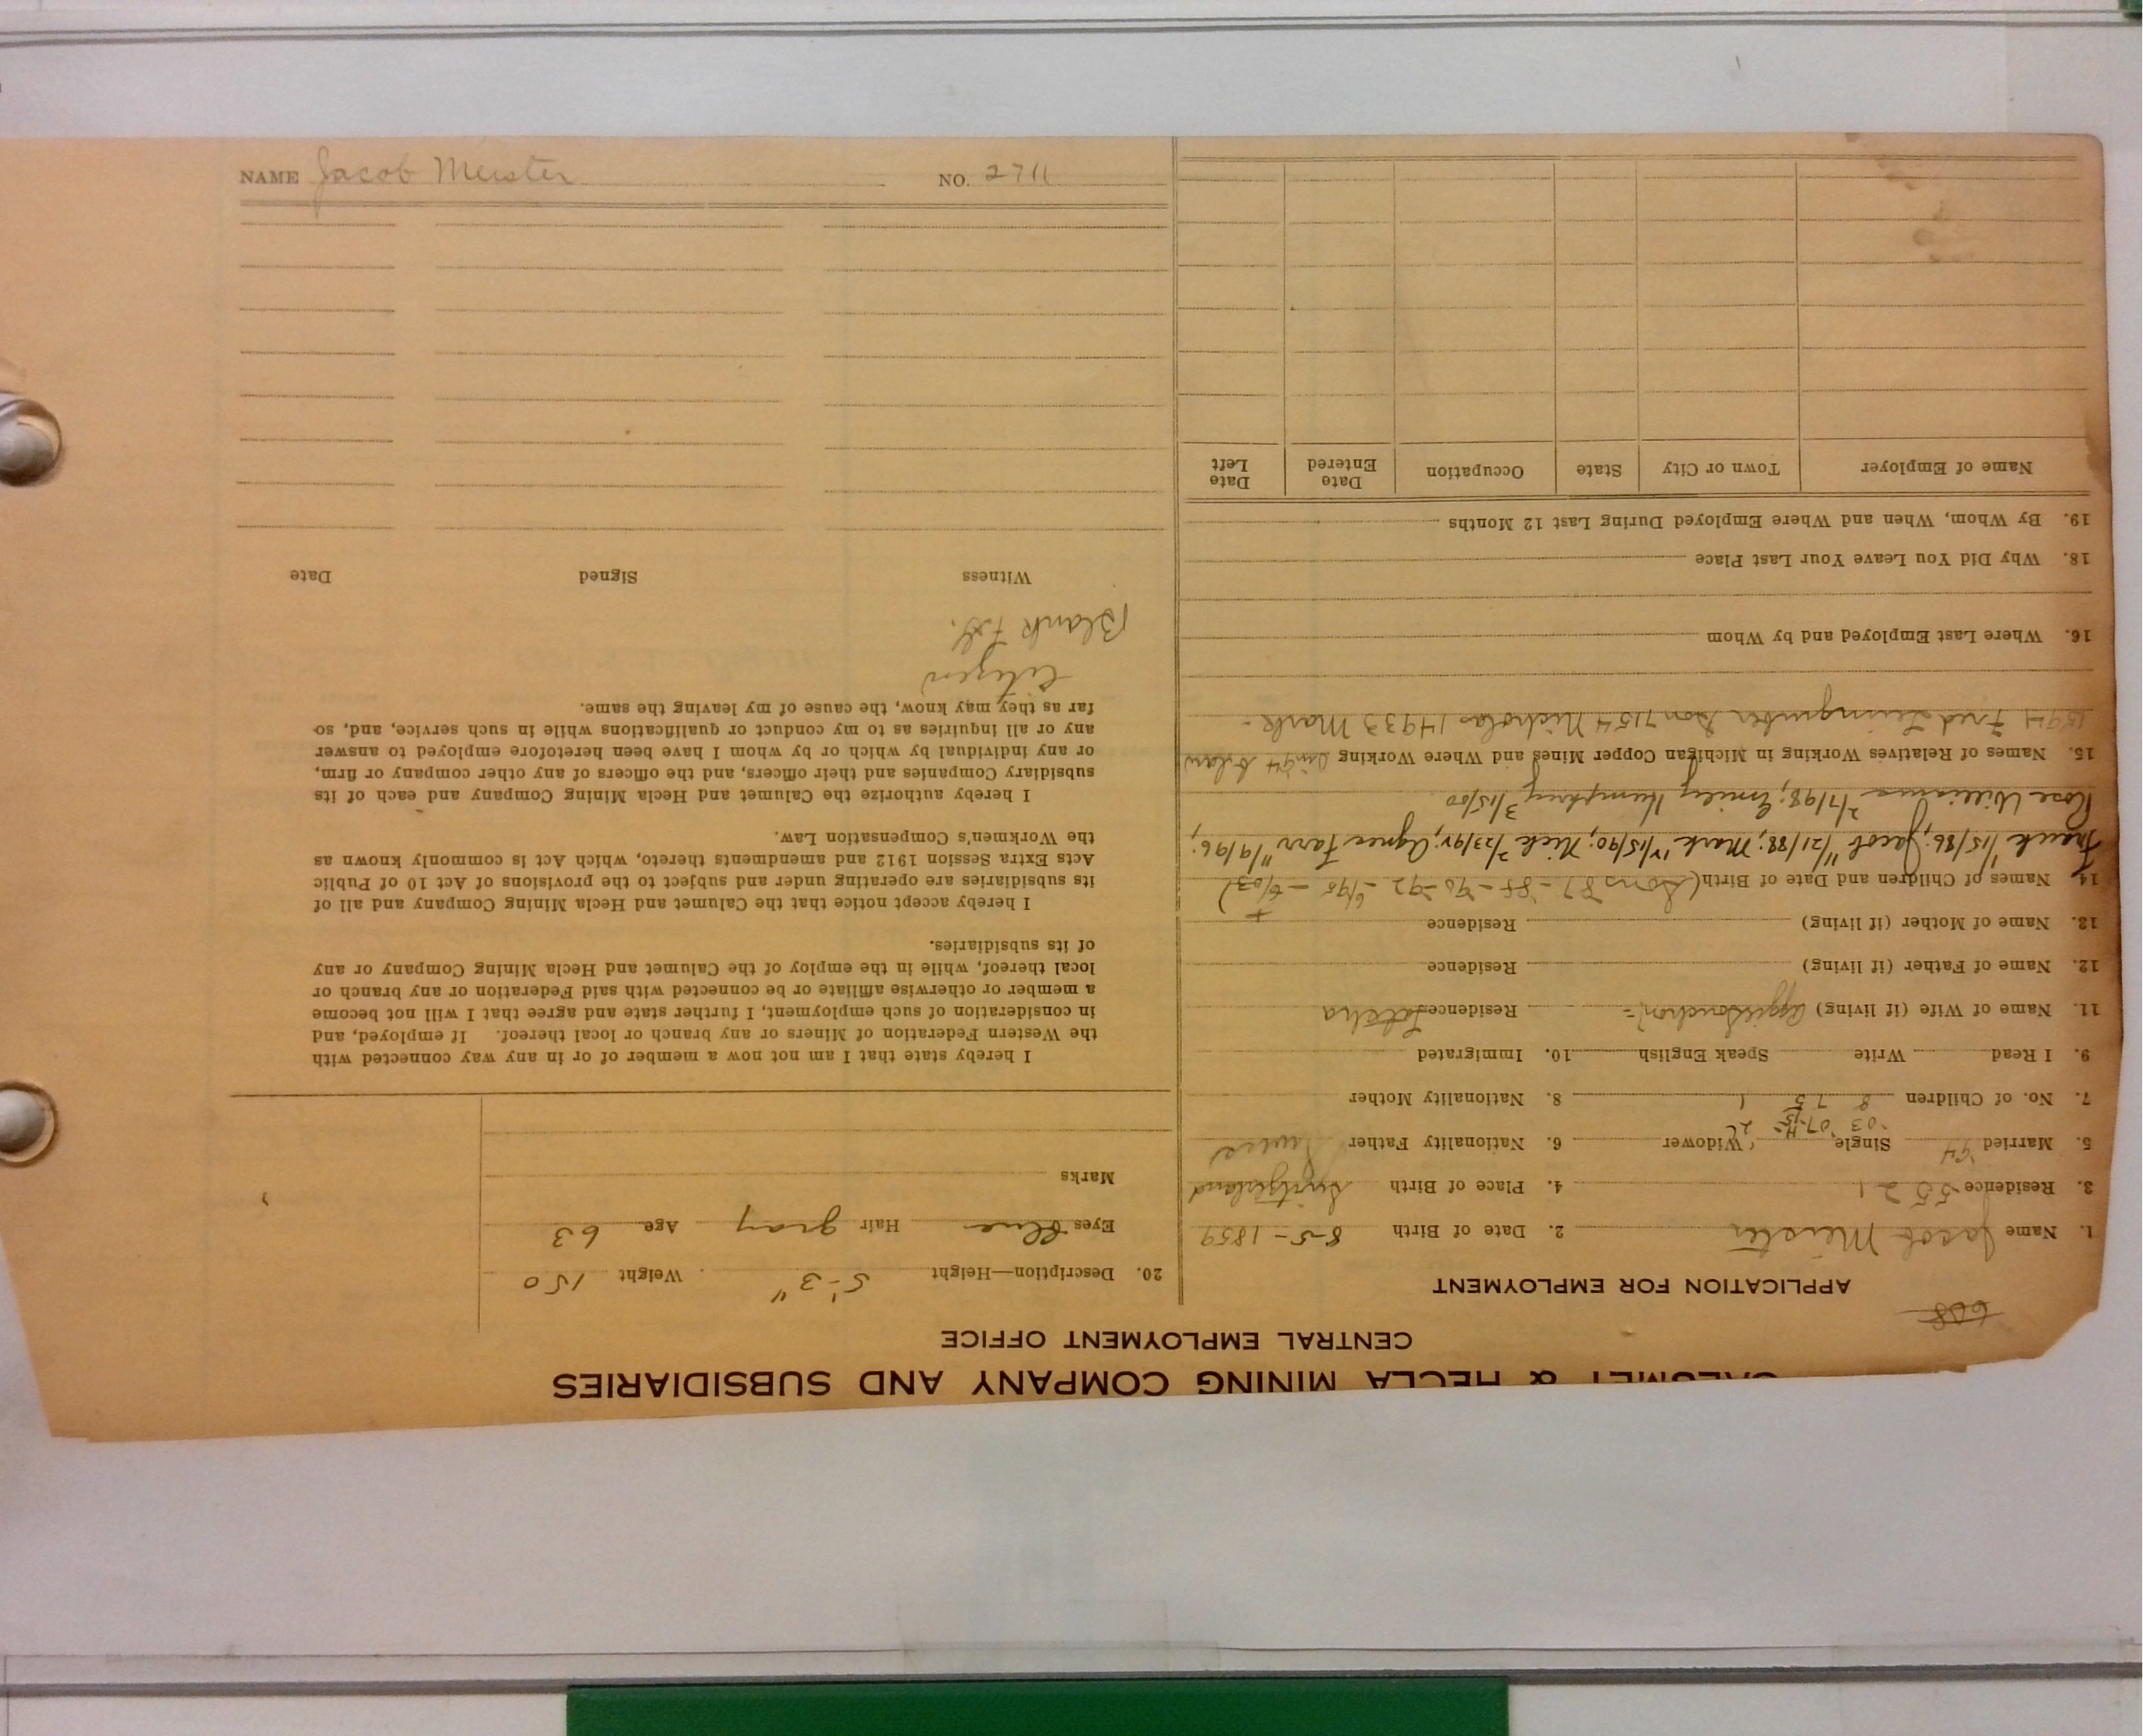 CALUMET & HECLA MINING COMPANY AND SUBSIDIARIES
CENTRAL EMPLOYMENT OFFICE
608
APPLICATION FOR EMPLOYMENT
1. Name Jacob Meister 2. Date of Birth 8-5-1859
3. Residence 5521 4. Place of Birth Switzerland
5. Married '94 Single Widower 6. Nationality Father Swiss
'03 '07-
7. No. of Children 8 7 5 1 8. Nationality Mother
9. I Read Write Speak English 10. Immigrated
11. Name of Wife (if living) Residence
12. Name of Father (if living) Residence
13. Name of Mother (if living) Residence
14. Names of Children and Date of Birth (Sons 87-88-90-92-6/95-6/03)
Frank 1/15/86; Jacob 11/21/88; Mark 12/15/90; Nick 2/23/91; Agnes Farr 11/9/96;
Rose Williams 2/7/98; Emily Humphrey 3/15/00
15. Names of Relatives Working in Michigan Copper Mines and Where Working
1594 Fred Son 7154 Nicholas 14933 Mark-
16. Where Last Employed and by Whom
18. Why Did You Leave Your Last Place
19. By Whom, When and Where Employed During Last 12 Months
Name of Employer Town or City State Occupation Date Entered Date Left
20. Description—Height 5'-3" Weight 150
Eyes Blue Hair gray Age 63
Marks
I hereby state that I am not now a member of or in any way connected with
the Western Federation of Miners or any branch or local thereof. If employed, and
in consideration of such employment, I further state and agree that I will not become
a member or otherwise affiliate or be connected with said Federation or any branch or
local thereof, while in the employ of the Calumet and Hecla Mining Company or any
of its subsidiaries.
I hereby accept notice that the Calumet and Hecla Mining Company and all of
its subsidiaries are operating under and subject to the provisions of Act 10 of Public
Acts Extra Session 1912 and amendments thereto, which Act is commonly known as
the Workmen's Compensation Law.
I hereby authorize the Calumet and Hecla Mining Company and each of its
subsidiary Companies and their officers, and the officers of any other company or firm,
or any individual by which or by whom I have been heretofore employed to answer
any or all inquiries as to my conduct or qualifications while in such service, and, so
far as they may know, the cause of my leaving the same.
Citizen
Blank
Witness Signed Date
NAME Jacob Meister NO. 2711